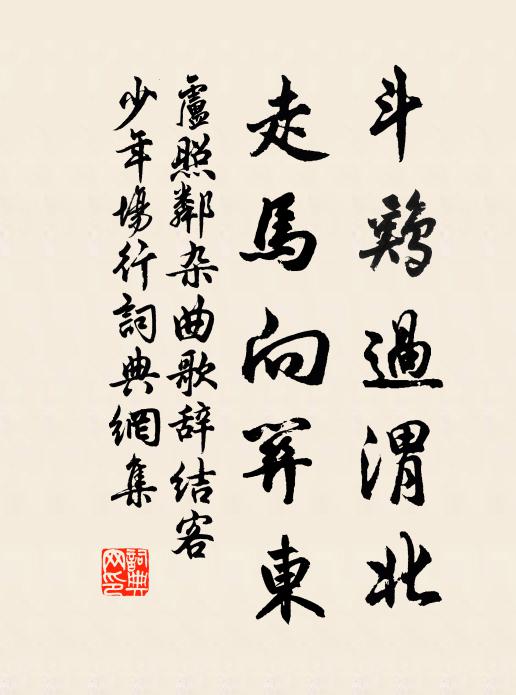 斗鷄過渭北
走馬向關東
盧照鄰杂曲歌辞結客
少年場行詞典網集
詞典網印